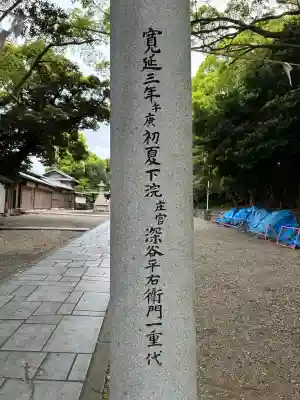 寛延三年午庚初夏下浣庄官深谷平右衛門一重代